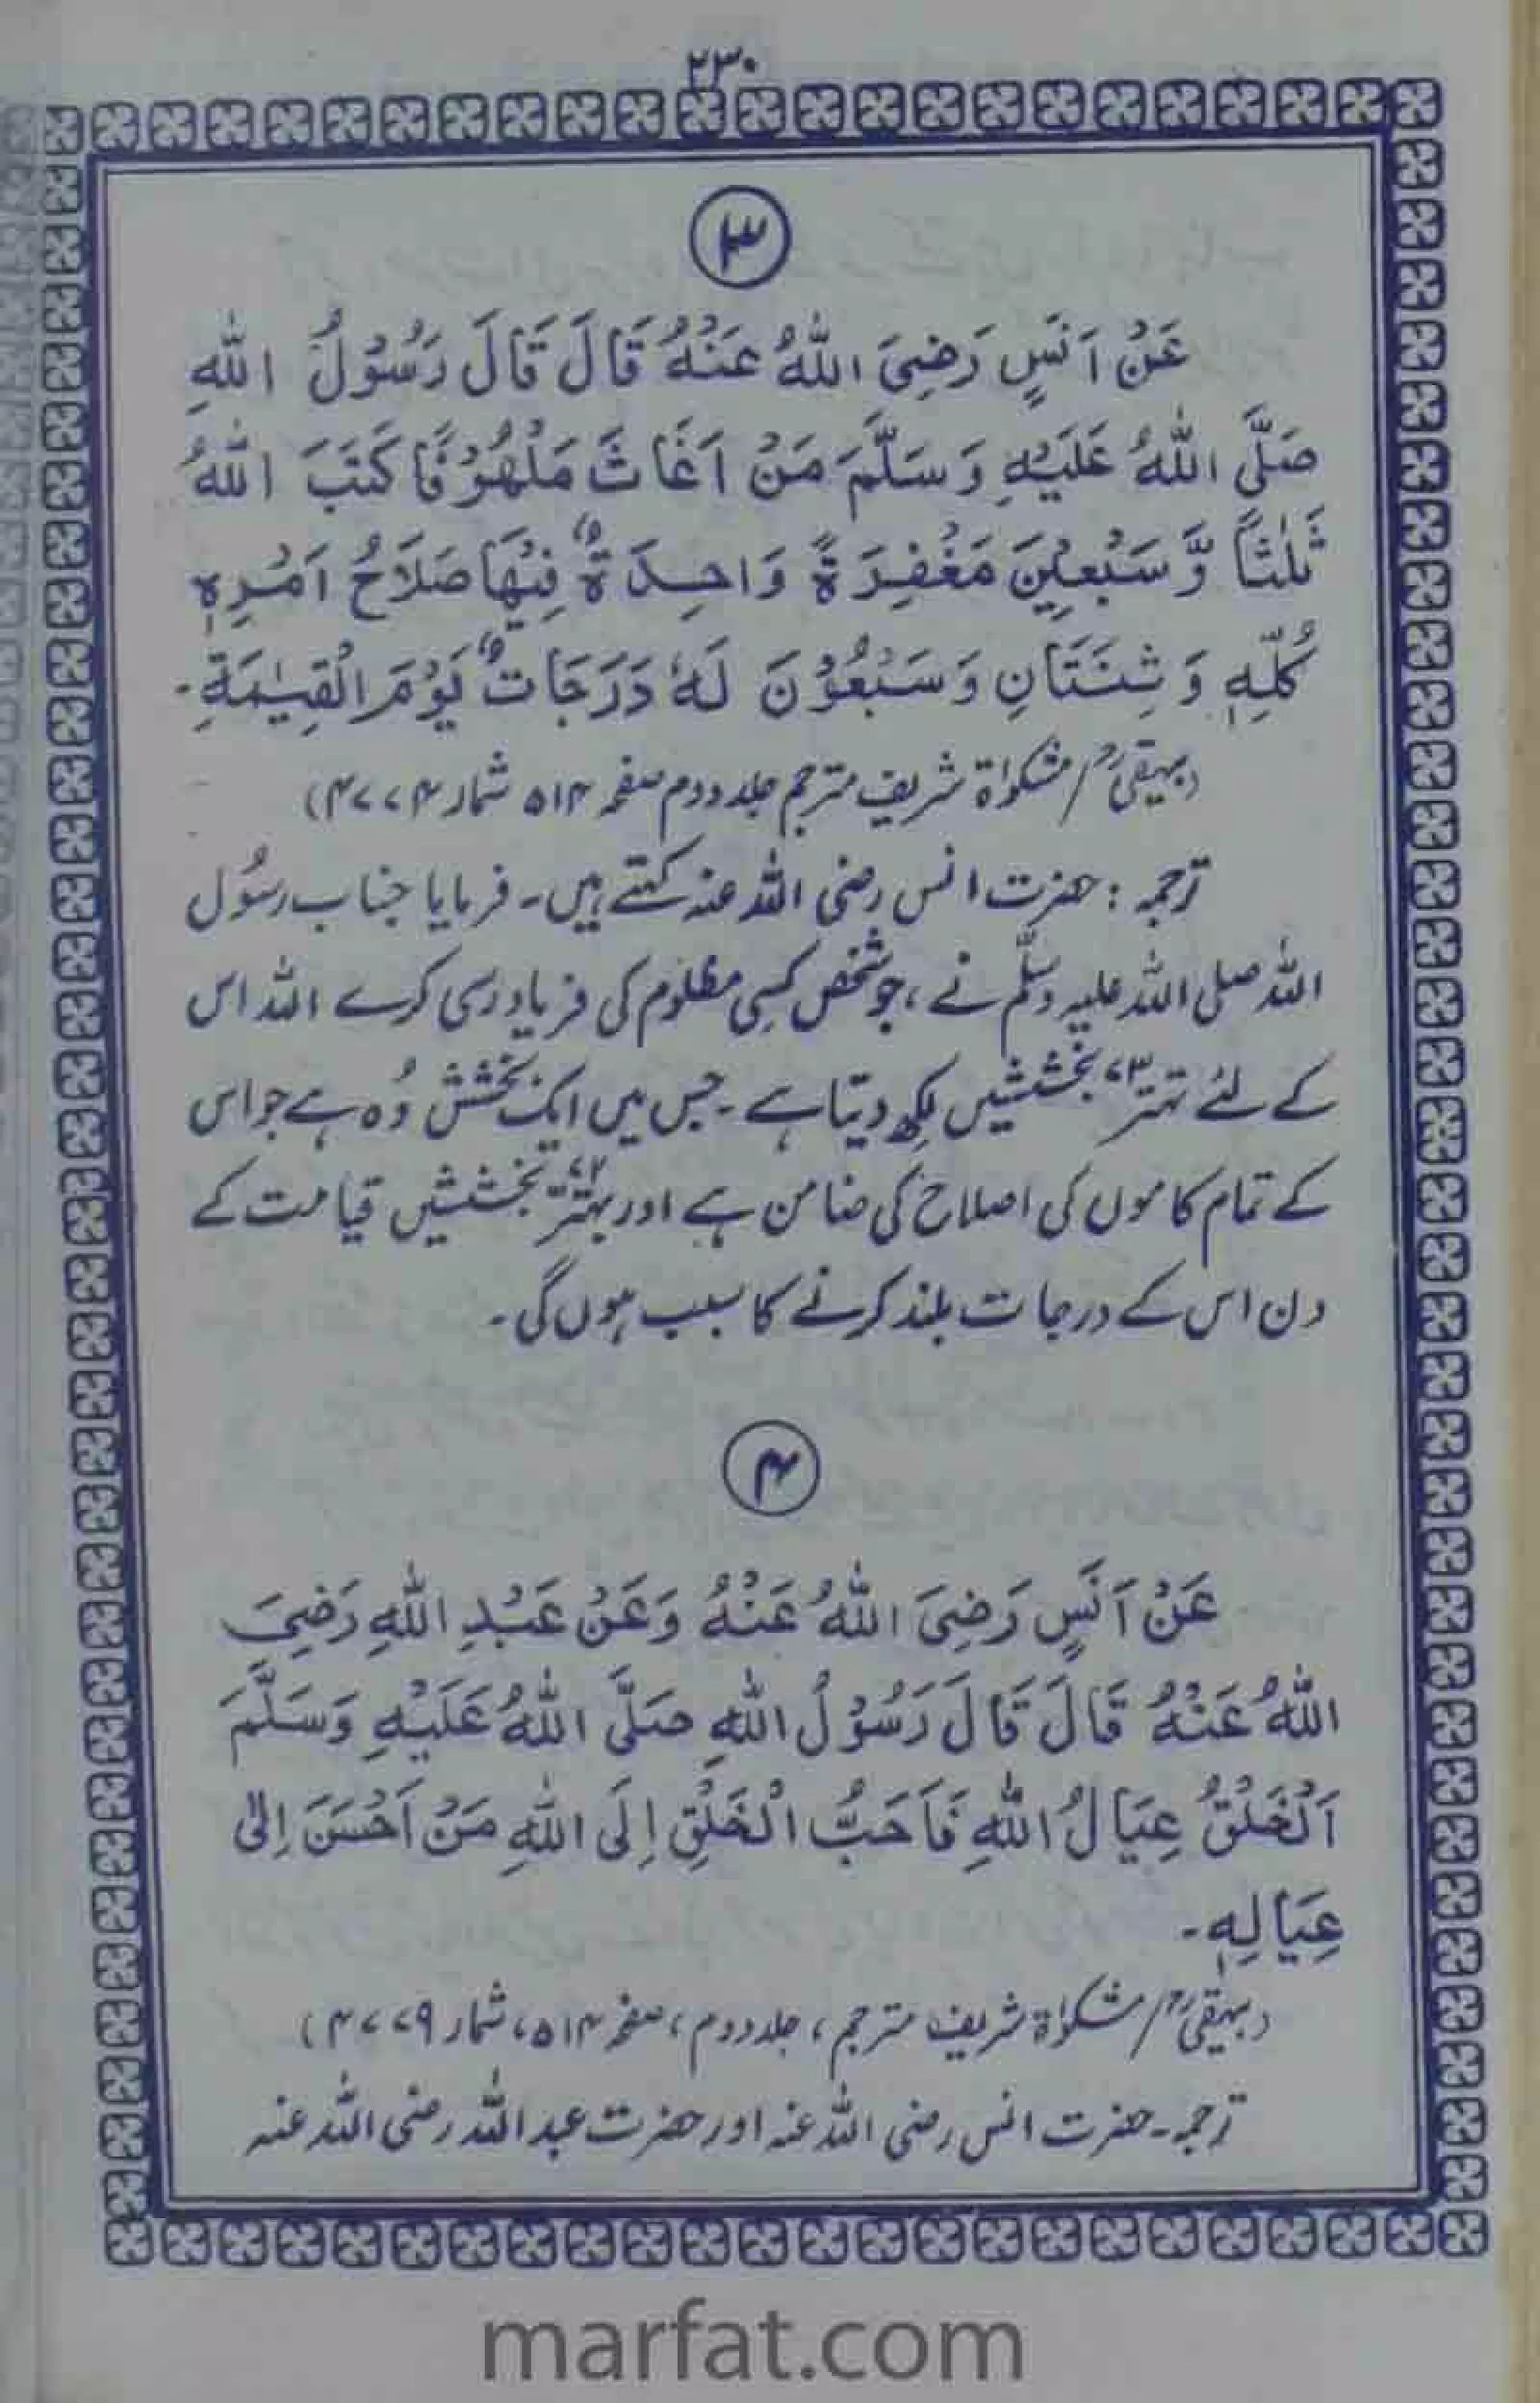 ۲۳۰
۳
عَنْ اَنَسٍ رَضِیَ اللّٰهُ عَنْهُ قَالَ قَالَ رَسُوْلُ اللّٰهِ
صَلَّی اللّٰهُ عَلَیْهِ وَسَلَّمَ مَنْ اَغَاثَ مَلْهُوْفًا کَتَبَ اللّٰهُ
ثَلٰثًا وَّسَبْعِیْنَ مَغْفِرَةً وَاحِدَةٌ فِیْهَا صَلَاحُ اَمْرِهٖ
کُلِّهٖ وَثِنَتَانِ وَسَبْعُوْنَ لَهٗ دَرَجَاتٌ یَوْمَ الْقِیٰمَةِ۔
(بیہقیؒ/مشکوٰۃ شریف مترجم جلد دوم صفحہ ۵۱۴ شمار ۴۷۷۴)
ترجمہ : حضرت انس رضی اللہ عنہ کہتے ہیں۔ فرمایا جناب رسُول
اللہ صلی اللہ علیہ وسلّم نے ، جو شخص کسِی مظلوم کی فریاد رسی کرے اللہ اس
کے لئے تہتر ۷۳ بخششیں لکھ دیتا ہے ۔ جس میں ایک بخشش وُہ ہے جو اس
کے تمام کاموں کی اصلاح کی ضامن ہے اور بہتّر ۷۲ بخششیں قیامت کے
دن اس کے درجات بلند کرنے کا سبب ہوں گی ۔
۴
عَنْ اَنَسٍ رَضِیَ اللّٰهُ عَنْهُ وَعَنْ عَبْدِ اللّٰهِ رَضِیَ
اللّٰهُ عَنْهُ قَالَ قَالَ رَسُوْلُ اللّٰهِ صَلَّی اللّٰهُ عَلَیْهِ وَسَلَّمَ
اَلْخَلْقُ عِیَالُ اللّٰهِ فَاَحَبُّ الْخَلْقِ اِلَی اللّٰهِ مَنْ اَحْسَنَ اِلٰی
عِیَالِهٖ۔
(بیہقیؒ/مشکوٰۃ شریف مترجم ، جلد دوم ، صفحہ ۵۱۴ ، شمار ۴۷۷۹)
ترجمہ ۔ حضرت انس رضی اللہ عنہ اور حضرت عبد اللہ رضی اللہ عنہ
marfat.com